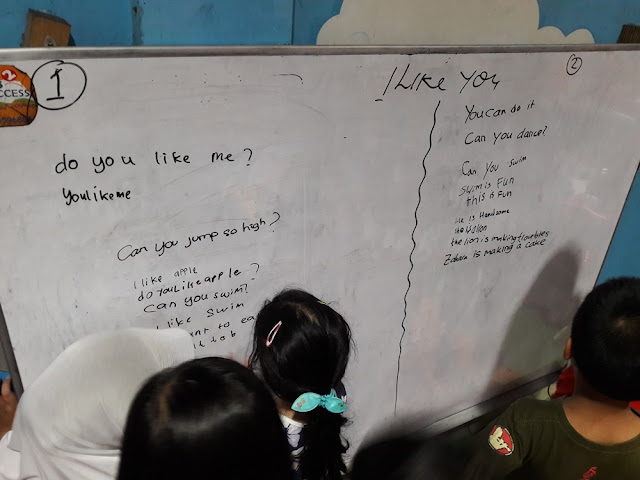 1
do you like me?
Youlikeme
Can you jump so high?
I like apple
do youLikeapple?
Can you swim?
like swim
to
I LIKE YOU
2
You can do it
Can you dance?
Can you swim
swim is Fun
this is Fun
He is Handsome
the lion is making
Zahara is making a cake